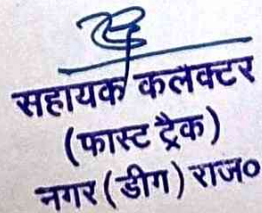 सहायक कलेक्टर
(फास्ट ट्रैक)
नगर (डीग) राज०